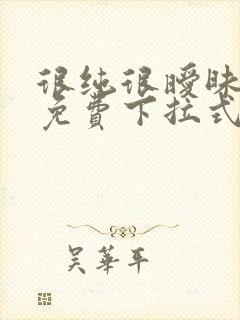 很纯很暧昧
免费下拉式
吴华平